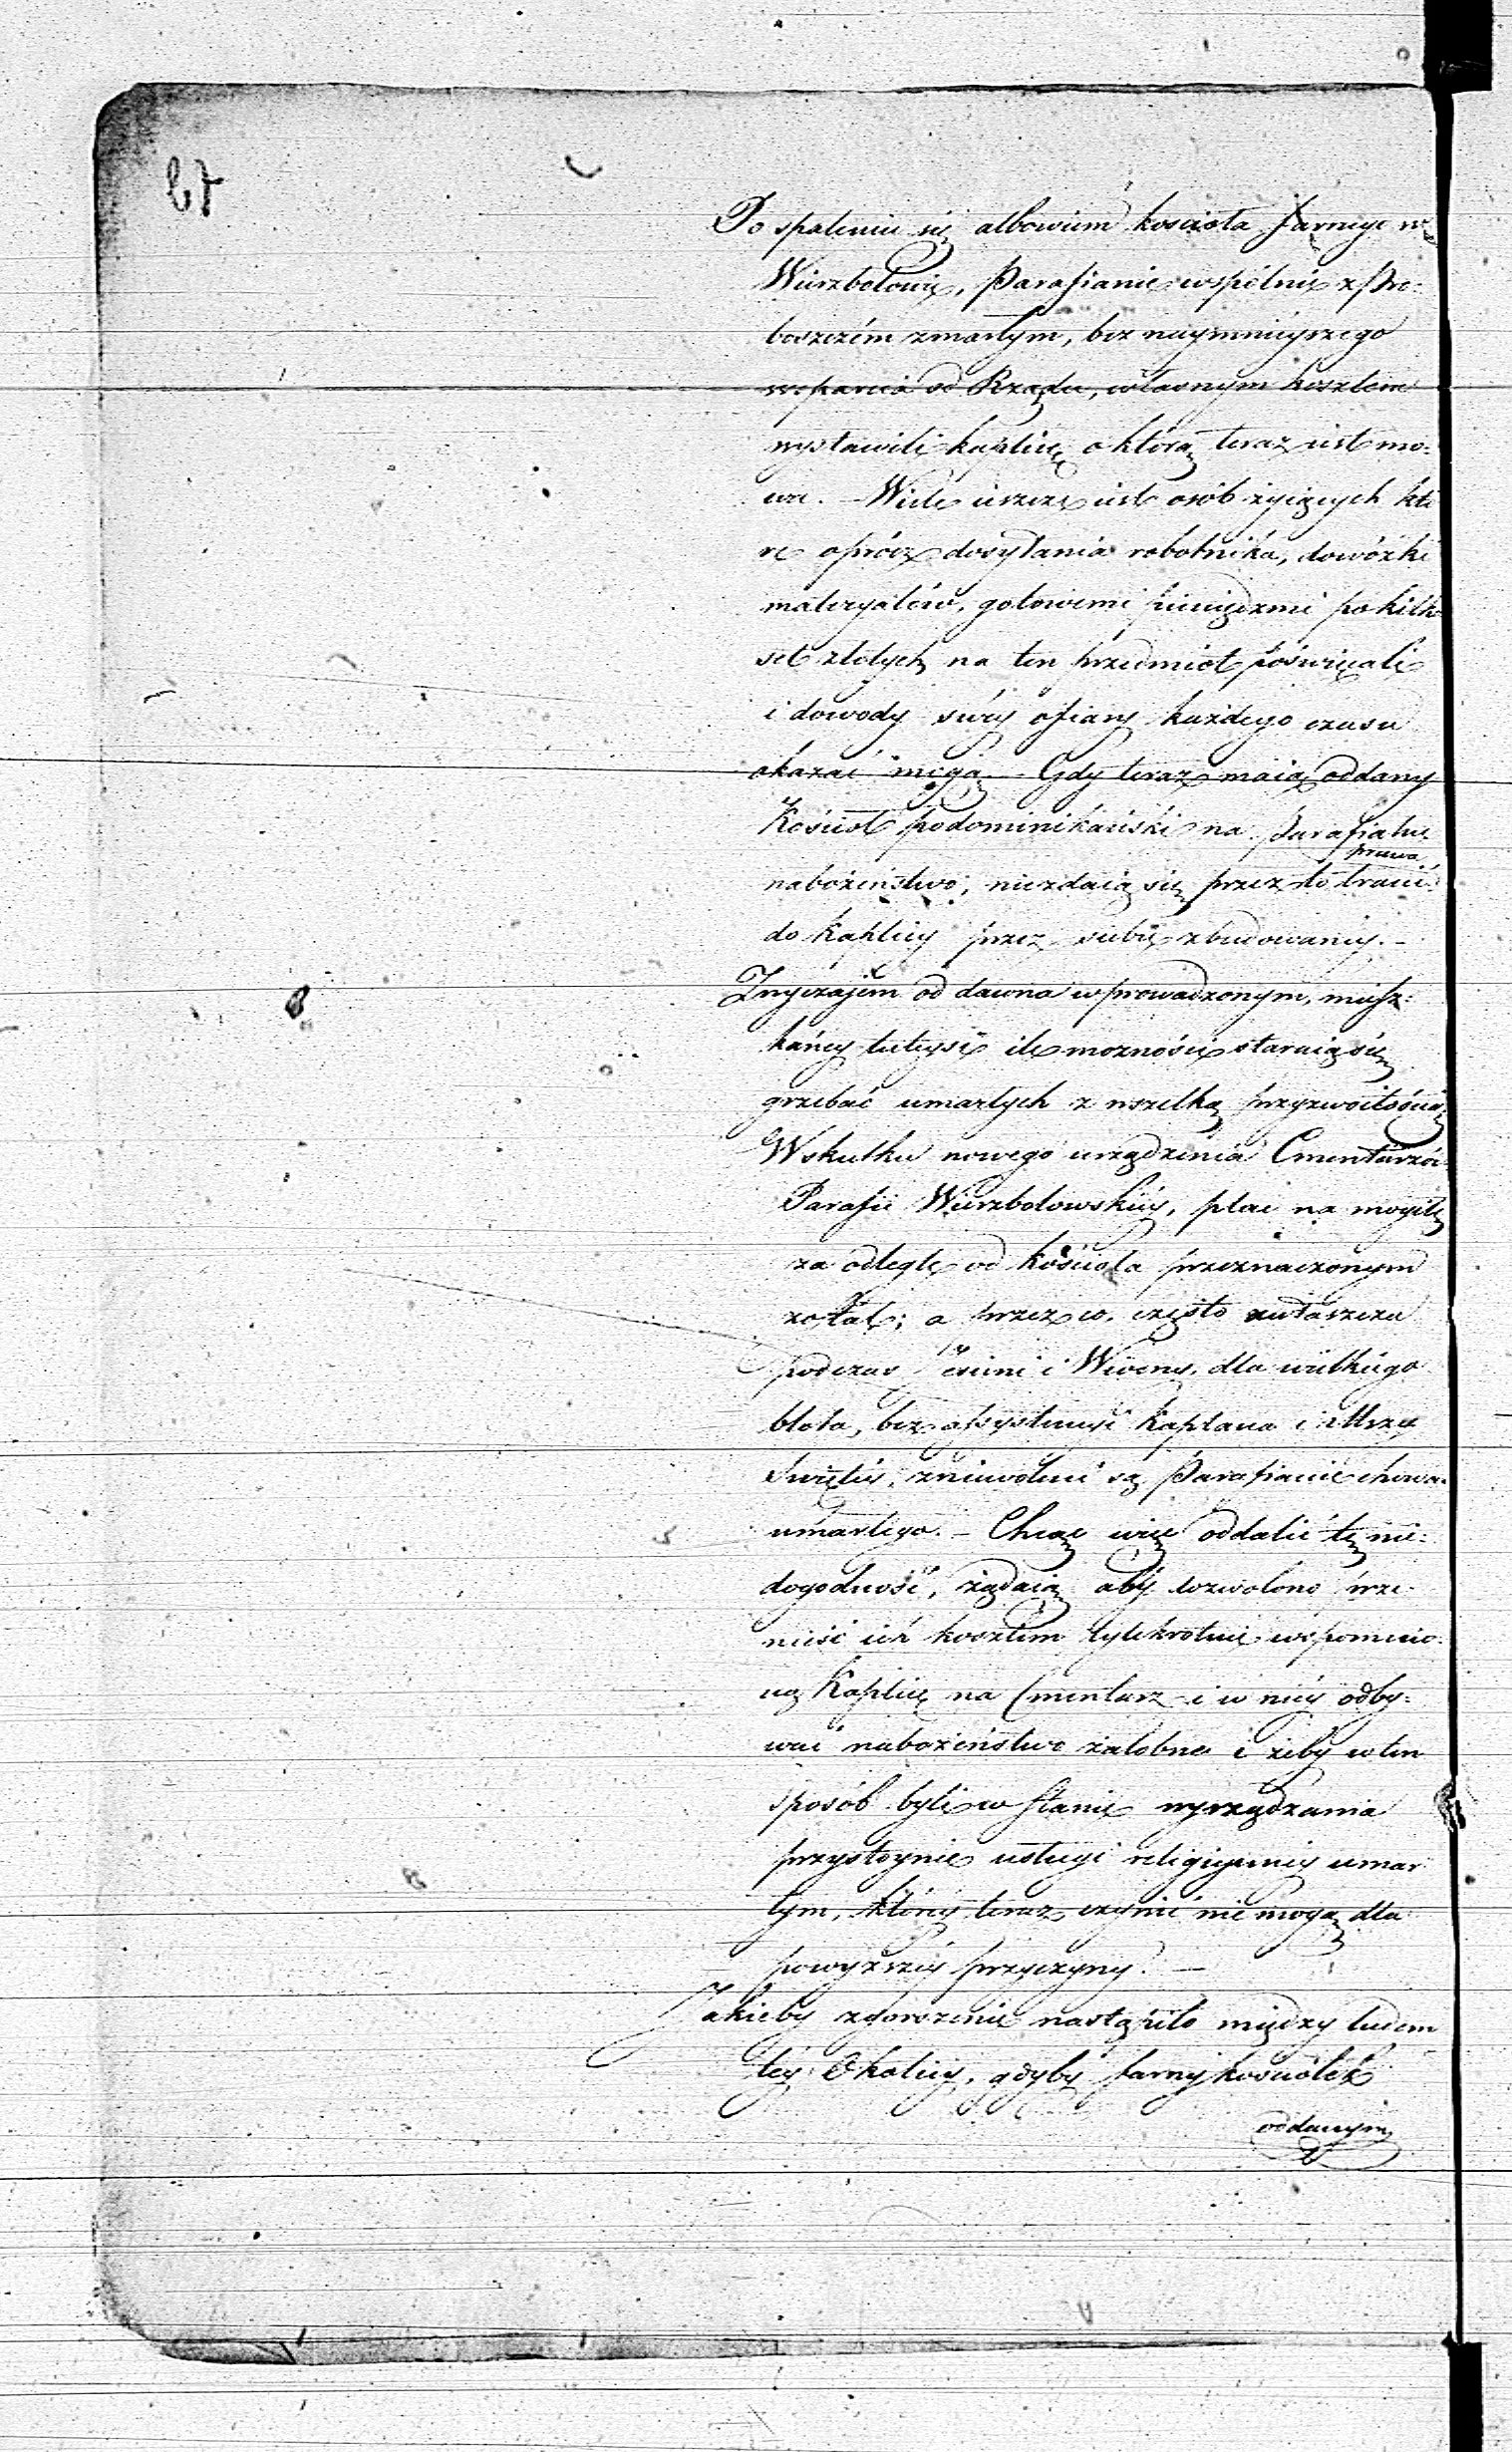 67
Po spaleniu się albowiem kościoła farnego w
Wierzbołowie, Parafianie wspólnie z Pro:
boszczem zmarłym, bez naymnieyszego
wsparcia od Rządu, własnym kosztem
wystawili kaplicę o którą teraz iest mo:
wa. – Wiele ieszcze iest osób żyiących któ
re oprócz dosyłania robotnika, dowózki
materyałów, gotowemi pieniędzmi po kilk
set złotych na ten przedmiot poświęcali
i dowody swéy ofiary każdego czasu
okazać mogą. – Gdy teraz maią oddany
Kościoł podominikański na parafialne
prawa
nabożeństwo, niezdaią się przez to tracić
do kaplicy przez siebie zbudowaney. –
Zwyczajem od dawna wprowadzonym, miesz:
kańcy tuteysi ile możności staraią się
grzebać umarłych z wszelką przyzwoitością
W skutku nowego urządzenia Cmentarzów
Parafii Wierzbołowskiéy, plac na mogiły
za odległe od kościoła przeznaczonym
został; a przez co, często zwłaszcza
podczas Jesieni i Wiosny, dla wielkiego
błota, bez assystencyi kapłana i Mszy
Świętéy, zniewoleni są Parafianie chowa
umarłego. – Chcąc więc oddalić tę nie:
dogodność, żądaią aby dozwolono prze
nieść ich kosztem tylekrotnie wspomnio:
ną Kaplicę na Cmentarz i w niéy odby:
wać nabożeństwo żałobne i żeby w ten
sposób byli w stanie wyrządzania
przystoynie usługi religiyney umar
łym, któréy teraz czynić nie mogą dla
powyższéy przyczyny. –
Jakieby zgorszenie nastąpiło między ludem
téy Okolicy, gdyby farny kosciołek
oddanym